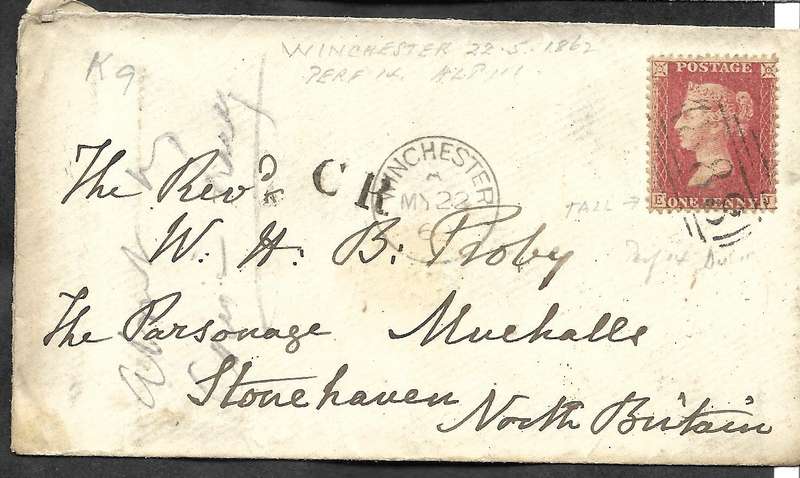 WINCHESTER 22.5.1862
PERF 14 ALP III
K9
POSTAGE
ONE PENNY
E
TALL →
WINCHESTER
A
MY 22
6
CR
The Revd.
W. H. B. Proby
The Parsonage Muchalls
Stonehaven
North Britain